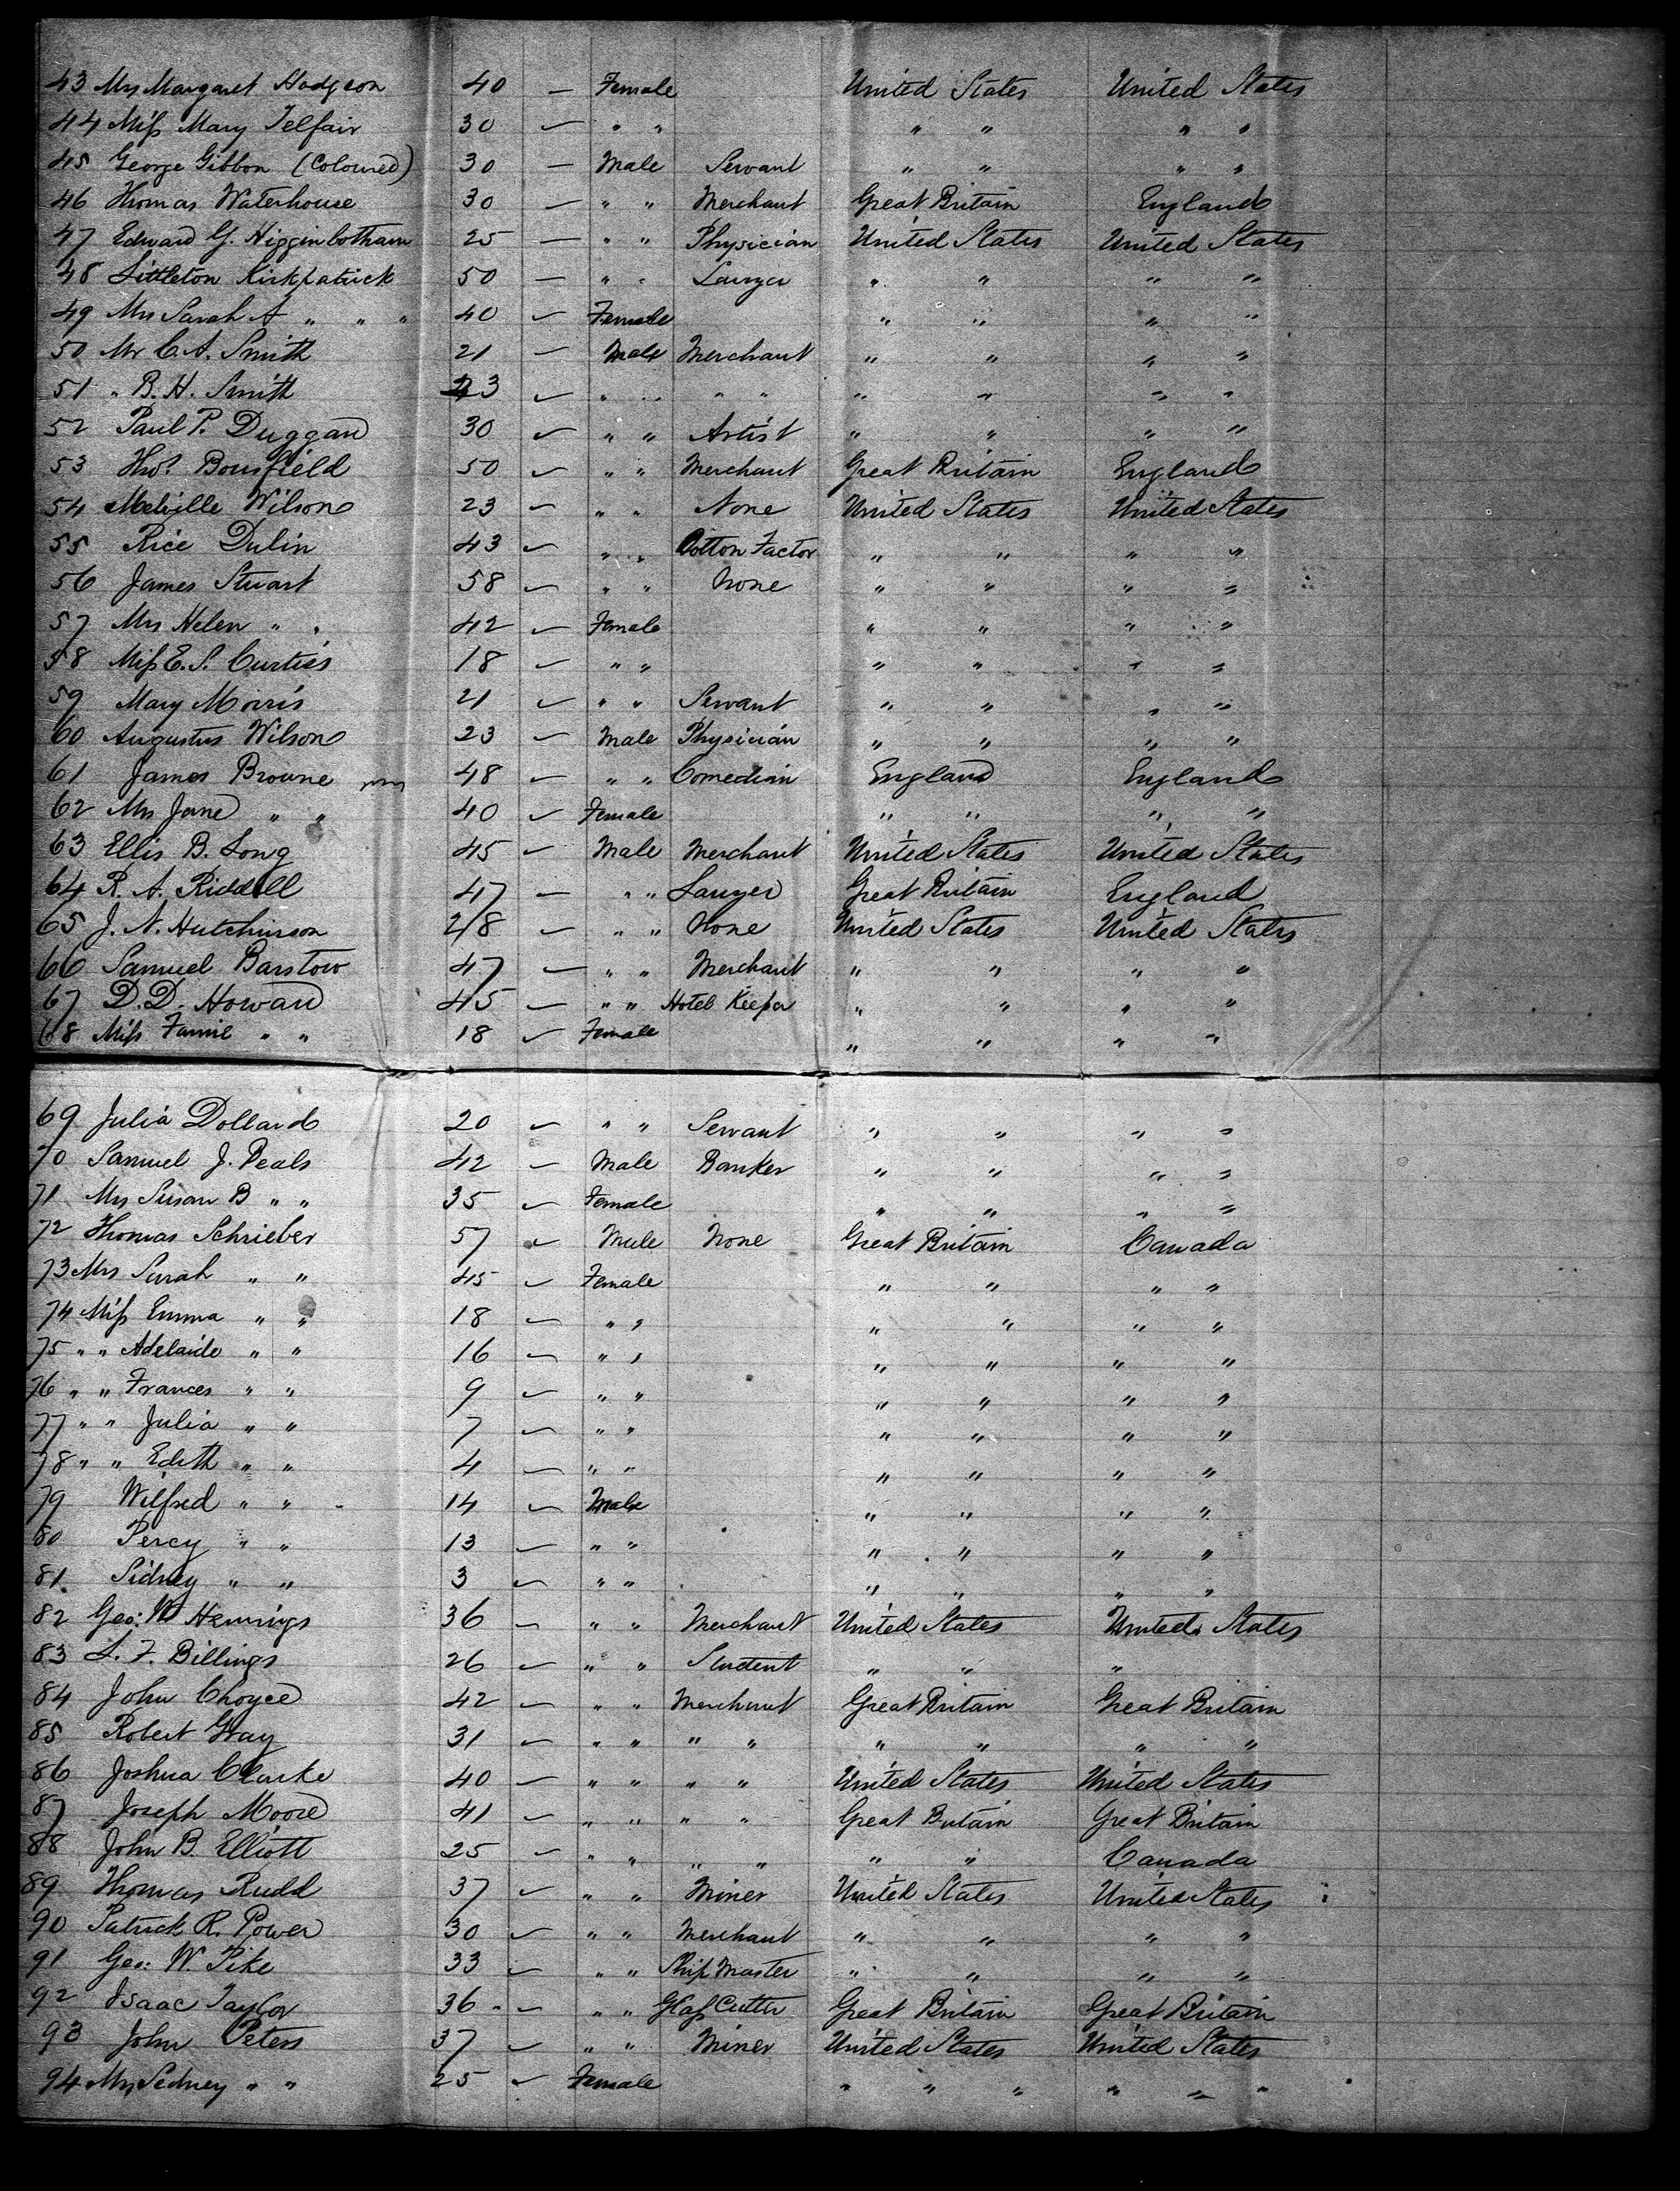 43 Mrs Margaret Hodgson 40 — Female United States United States
44 Miss Mary Telfair 30 — " " " " " "
45 George Gibbon (Coloured) 30 — Male Servant " " " "
46 Thomas Waterhouse 30 — " " Merchant Great Britain England
47 Edward G. Higginbotham 25 — " " Physician United States United States
48 Littleton Kirkpatrick 50 — " " Lawyer " " " "
49 Mrs Sarah A " " " 40 — Female " " " "
50 Mr C. A. Smith 21 — Male Merchant " " " "
51 " B. H. Smith 23 — " " " " " " " "
52 Paul P. Duggan 30 — " " Artist " " " "
53 Thos. Bousfield 50 — " " Merchant Great Britain England
54 Melville Wilson 23 — " " None United States United States
55 Rice Dulin 43 — " " Cotton Factor " " " "
56 James Stuart 58 — " " None " " " "
57 Mrs Helen " " 42 — Female " " " "
58 Miss E. S. Curtiss 18 — " " " " " "
59 Mary Morris 21 — " " Servant " " " "
60 Augustus Wilson 23 — Male Physician " " " "
61 James Browne 48 — " " Comedian England England
62 Mrs Jane " " 40 — Female " " " "
63 Ellis B. Long 45 — Male Merchant United States United States
64 R. A. Riddell 47 — " " Lawyer Great Britain England
65 J. N. Hutchinson 28 — " " None United States United States
66 Samuel Barstow 47 — " " Merchant " " " "
67 D. D. Howard 45 — " " Hotel Keeper " " " "
68 Miss Fannie " " 18 — Female " " " "
69 Julia Dollard 20 — " " Servant " " " "
70 Samuel J. Beals 42 — Male Banker " " " "
71 Mrs Susan B " " 35 — Female " " " "
72 Thomas Schrieber 57 — Male None Great Britain Canada
73 Mrs Sarah " " 45 — Female " " " "
74 Miss Emma " " 18 — " " " " " "
75 " " Adelaide " " 16 — " " " " " "
76 " " Frances " " 9 — " " " " " "
77 " " Julia " " 7 — " " " " " "
78 " " Edith " " 4 — " " " " " "
79 Wilfred " " 14 — Male " " " "
80 Percy " " 13 — " " " " " "
81. Sidney " " 3 — " " " " " "
82 Geo: W Hennings 36 — " " Merchant United States United States
83 L. F. Billings 26 — " " Student " " "
84 John Choyce 42 — " " Merchant Great Britain Great Britain
85 Robert Gray 31 — " " " " " " " "
86 Joshua Clarke 40 — " " " " United States United States
87 Joseph Moore 41 — " " " " Great Britain Great Britain
88 John B. Elliott 25 — " " " " " " Canada
89 Thomas Rudd 37 — " " Miner United States United States
90 Patrick R. Power 30 — " " Merchant " " " "
91 Geo: W. Pike 33 — " " Ship Master " " " "
92 Isaac Taylor 36 — " " Glass Cutter Great Britain Great Britain
93 John Peters 37 — " " Miner United States United States
94 Mrs Sidney " " 25 — Female " " " " " "